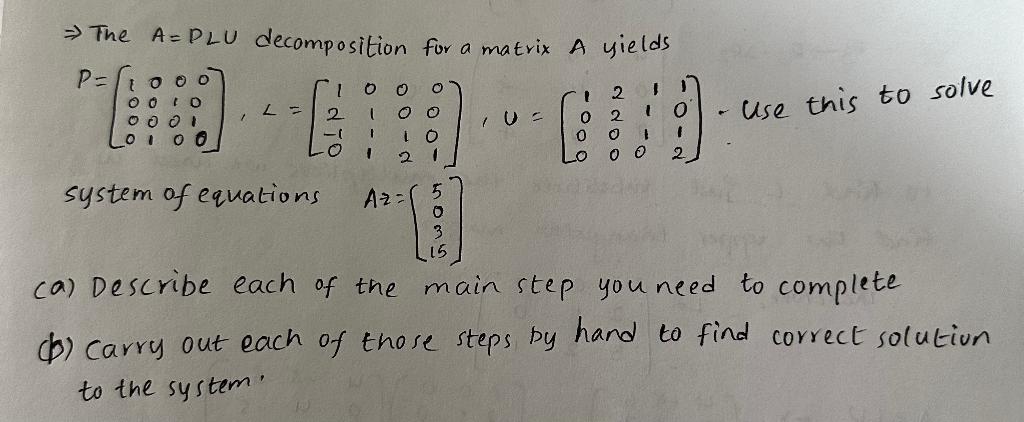 ⇒ The A = PLU decomposition for a matrix A yields
P = [1 0 0 0; 0 0 1 0; 0 0 0 1; 0 1 0 0], L = [1 0 0 0; 2 1 0 0; -1 1 1 0; 0 1 2 1], U = [1 2 1 1; 0 2 1 0; 0 0 1 1; 0 0 0 2] - Use this to solve
system of equations Az = [5; 0; 3; 15]
(a) Describe each of the main step you need to complete
(b) Carry out each of those steps by hand to find correct solution
to the system.